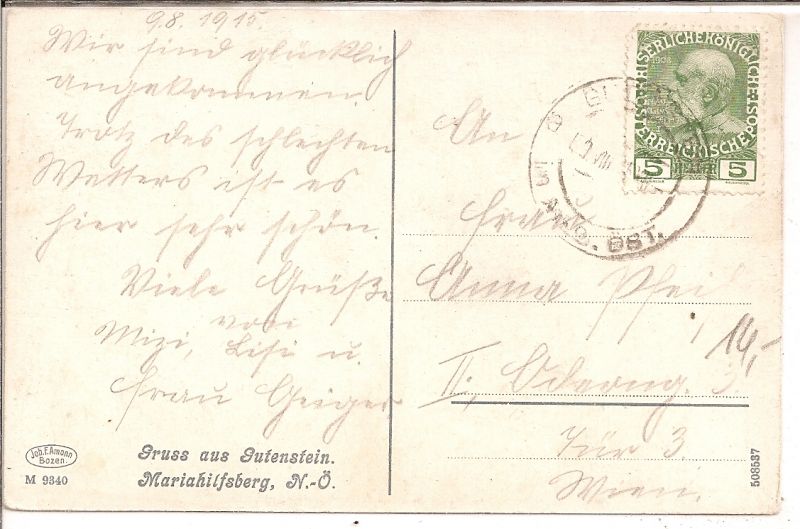 9.8. 1915.
Wir sind glücklich
angekommen.
Trotz des schlechten
Wetters ist es
hier sehr schön.
Viele Grüße
von
Mizi, Lisi u.
Frau Geiger
Joh. F. Amonn
Bozen.
M 9340
Gruss aus Gutenstein.
Mariahilfsberg, N.-Ö.
KAISERLICHE KÖNIGLICHE
ÖSTERREICHISCHE POST
1908
5 HELLER 5
ÖST.
An
Frau
Anna Pfeil
14,-
II.,
Tür 3
Wien.
508537